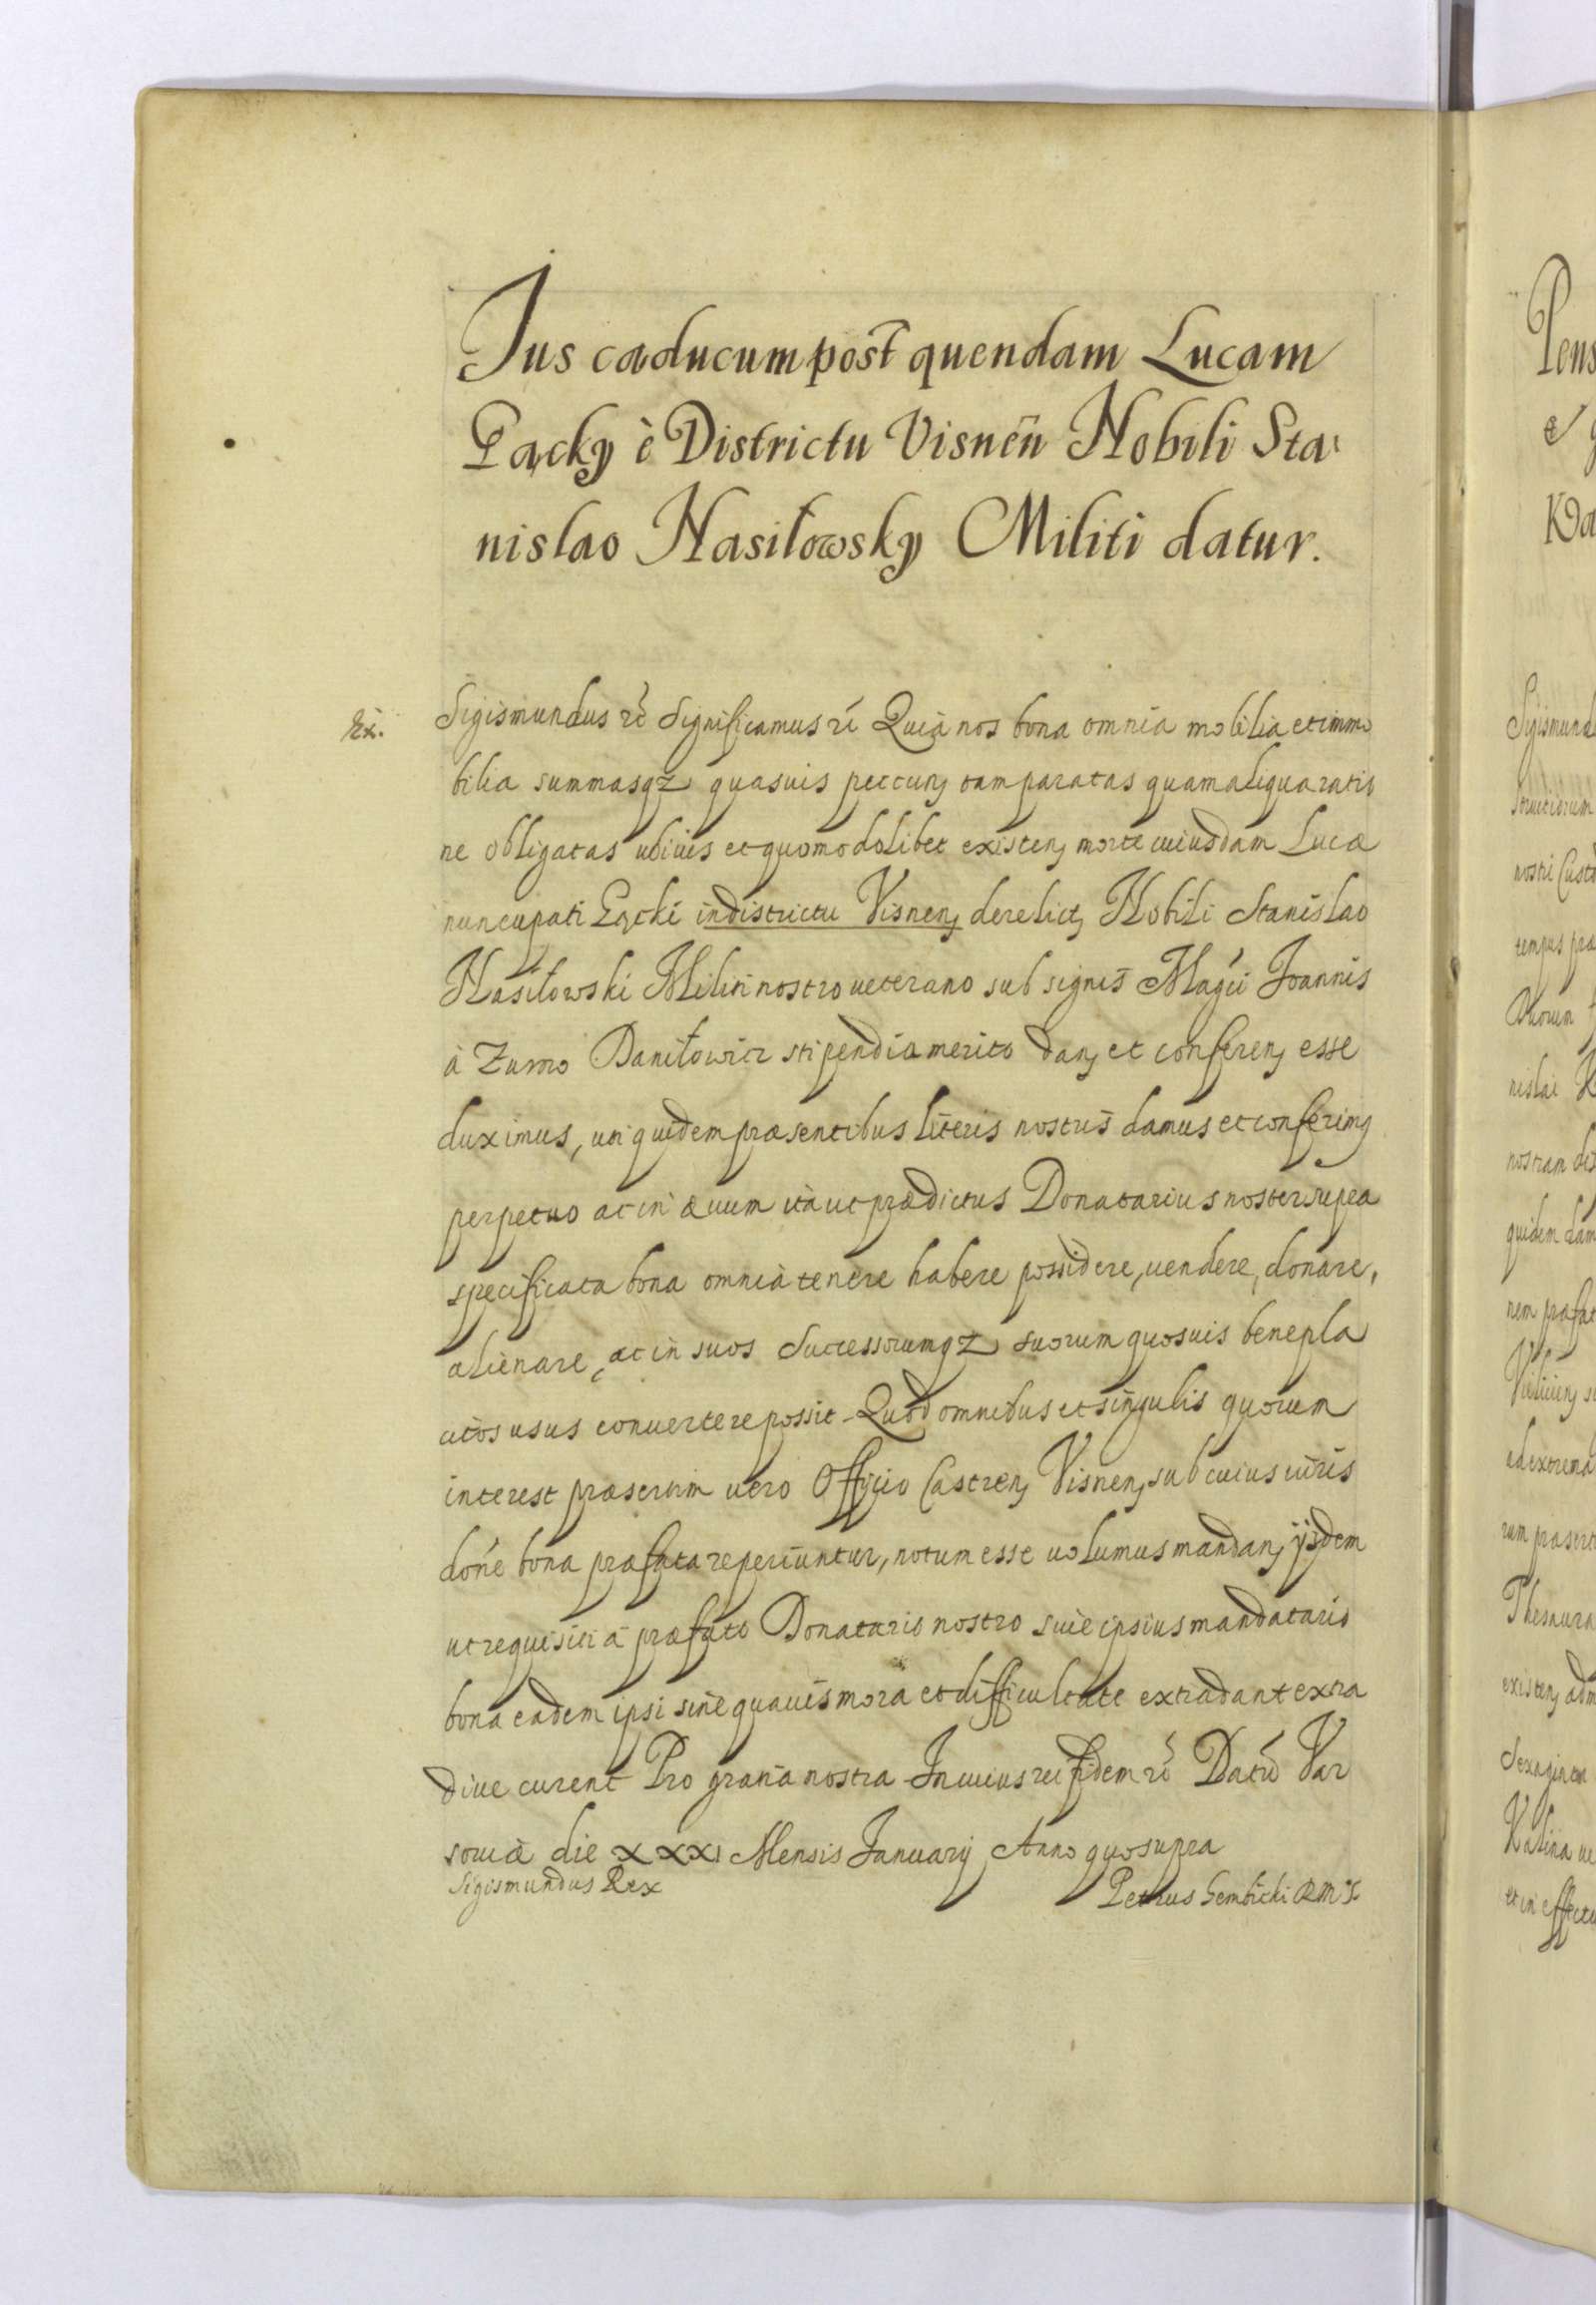 Jus caducum post quendam Lucam
Pącky è Districtu Visneñ Nobili Sta:
nislao Nasiłowsky Militi datur.
Ex.
Sigismundus rc̃ Significamus rc̃ Quia nos bona omnia mobilia et immo
bilia summasqz quasuis peccuñ tam paratas quam aliqua ratio
ne obligatas ubiuis et quomodolibet existeñ morte cuiusdam Lucæ
nuncupati Pącki in districtu Visneñ derelict, Nobili Stanislao
Nasiłowski Militi nostro ueterano sub signis Magci Joannis
à Zurow Daniłowicz stipendia merito dañ et confereñ esse
duximus, uti quidem præsentibus literis nostris damus et conferimꝯ
perpetuo ac in æuum ità ut prædictus Donatarius noster supra
specificata bona omnia tenere habere possidere, uendere, donare,
alienare, ac in suos Successorumqz suorum quosuis benepla
citos usus conuertere possit. Quod omnibus et singulis quorum
interest præsertim uero Officio Castreñ Visneñ sub cuius iuris
doñe bona præfata reperiuntur, notum esse uolumus mandañ ijsdem
ut requisiti à præfato Donatario nostro siue ipsius mandatario
bona eadem ipsi sine quauis mora et difficultate extradant extra
diue curent Pro gratia nostra In cuius rei fidem rc̃ Datũ Var
souiæ die XXXI Mensis Januarij Anno quo supra
Sigismundus Rex
Petrus Gembicki R M S
Pens
Sigismund
nostri Custo
tempus præ
nislai
quidem dam
ad extrema
Thesaura
existeñ adm